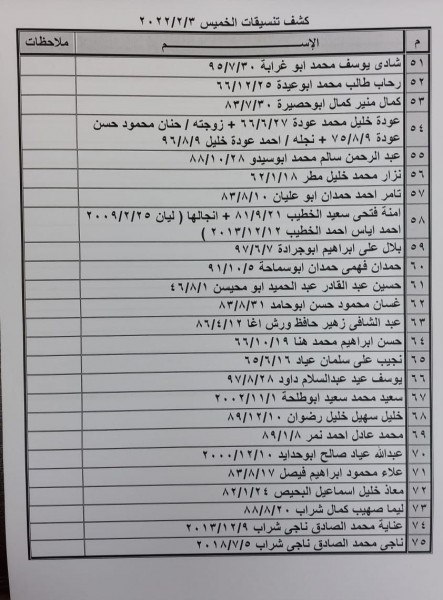 كشف تنسيقات الخميس ٢٠٢٢/٢/٣
م الإســـــــم ملاحظات
٥١ شادى يوسف محمد ابو غرابة ٩٥/٧/٣٠
٥٢ رحاب طالب محمد ابوعيدة ٦٦/١٢/٢٥
٥٣ كمال منير كمال ابوحصيرة ٨٣/٧/٣٠
٥٤ عودة خليل محمد عودة ٦٦/٦/٢٧ + زوجته / حنان محمود حسن
عودة ٧٥/٨/٩ + نجله / احمد عودة خليل ٩٦/٨/٩
٥٥ عبد الرحمن سالم محمد ابوسيدو ٨٨/١٠/٢٨
٥٦ نزار محمد خليل مطر ٦٢/١/١٨
٥٧ تامر احمد حمدان ابو عليان ٨٣/٨/١٠
٥٨ امنة فتحى سعيد الخطيب ٨١/٩/٢١ + انجالها ( ليان ٢٠٠٩/٢/٢٥
احمد اياس احمد الخطيب ٢٠١٣/١٢/١٢ )
٥٩ بلال على ابراهيم ابوجرادة ٩٧/٦/٧
٦٠ حمدان فهمى حمدان ابوسماحة ٩١/١٠/٥
٦١ حسين عبد القادر عبد الحميد ابو محيسن ٤٦/٨/١
٦٢ غسان محمود حسن ابوحامد ٨٣/٨/٣١
٦٣ عبد الشافى زهير حافظ ورش اغا ٨٦/٤/١٢
٦٤ حسن ابراهيم محمد هنا ٦٦/١٠/١٩
٦٥ نجيب على سلمان عياد ٦٥/٦/١٦
٦٦ يوسف عيد عبدالسلام داود ٩٧/٨/٢٨
٦٧ سعيد محمد سعيد ابوطلحة ٢٠٠٢/١١/١
٦٨ خليل سهيل خليل رضوان ٨٩/١٢/١٠
٦٩ محمد عادل احمد نمر ٨٩/١/٨
٧٠ عبدالله عياد صالح ابوحدايد ٢٠٠٠/١٢/١٠
٧١ علاء محمود ابراهيم فيصل ٨٣/٨/١٧
٧٢ معاذ خليل اسماعيل البحيص ٨٢/١/٢٤
٧٣ ليما صهيب كمال شراب ٨٨/٨/٢٠
٧٤ عناية محمد الصادق ناجى شراب ٢٠١٣/١٢/٩
٧٥ ناجى محمد الصادق ناجى شراب ٢٠١٨/٧/٥